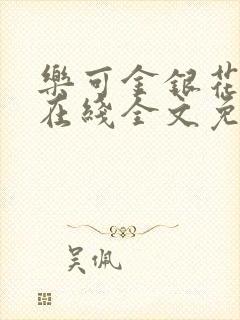 樂可金銀花
在綫全文免
吴佩